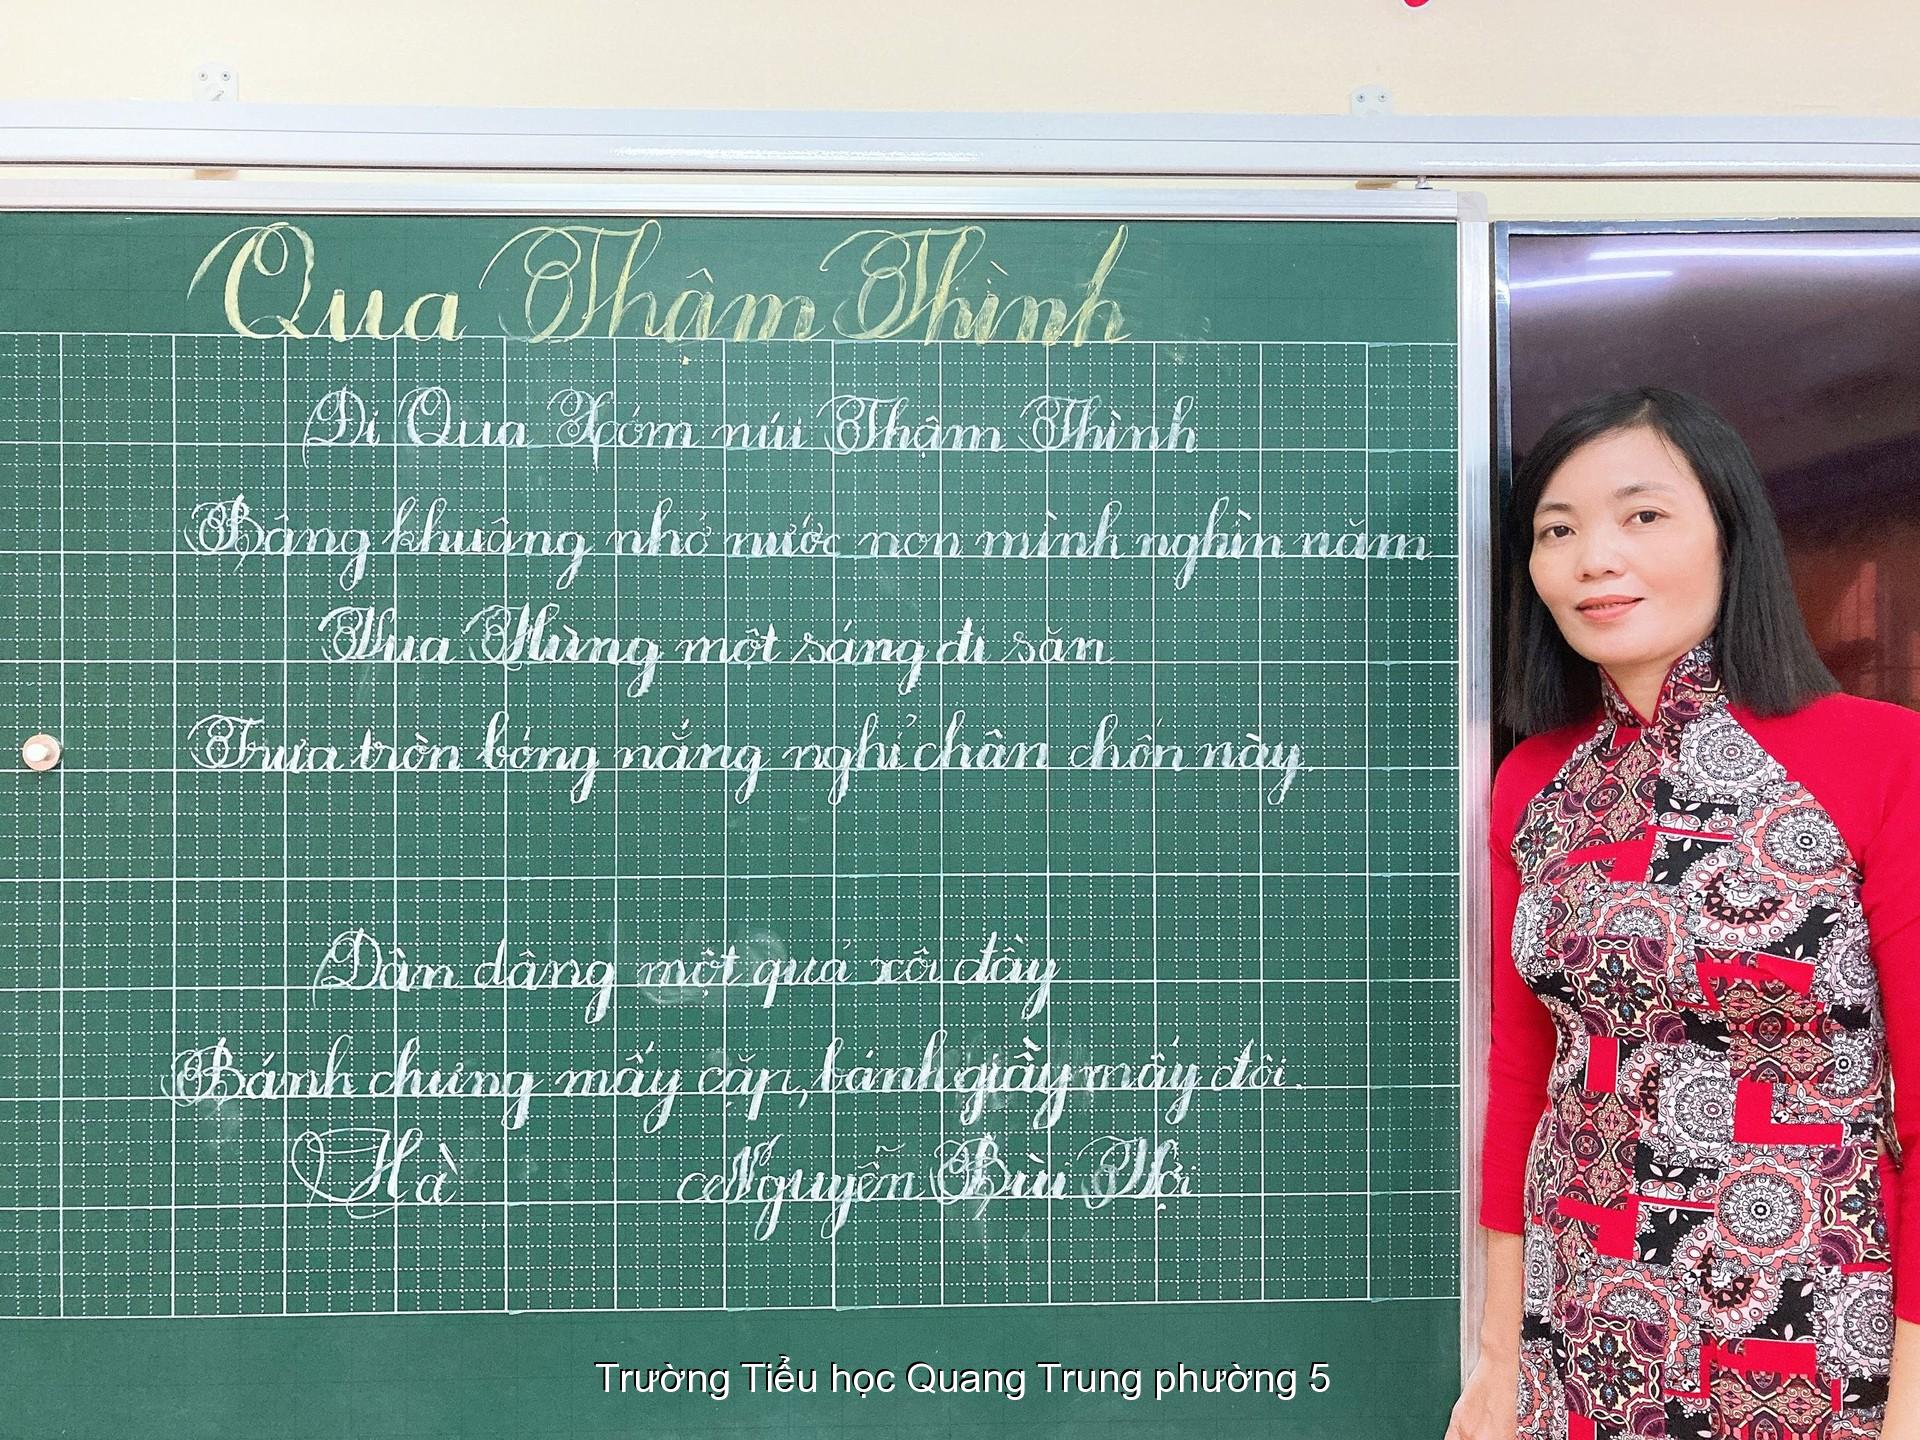 Qua Thậm Thình
Đi Qua Xóm núi Thậm Thình
Bâng khuâng nhớ nước non mình nghìn năm
Vua Hùng một sáng đi săn
Trưa tròn bóng nắng nghỉ chân chốn này.
Dân dâng một quả xôi đầy
Bánh chưng mấy cặp, bánh giầy mấy đôi.
Hà Nguyễn Bùi Vợi
Trường Tiểu học Quang Trung phường 5